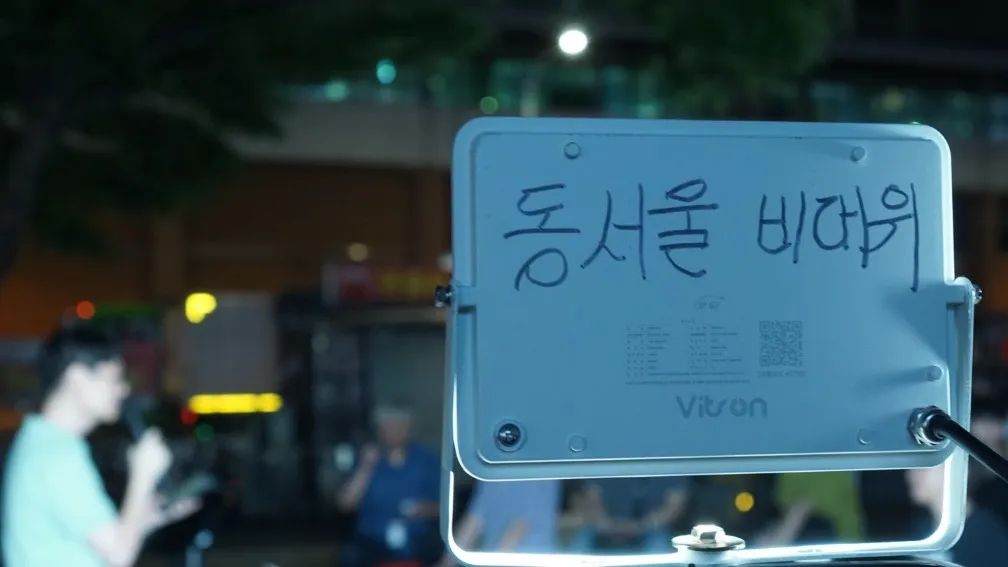 동서울 비대위
Vitron